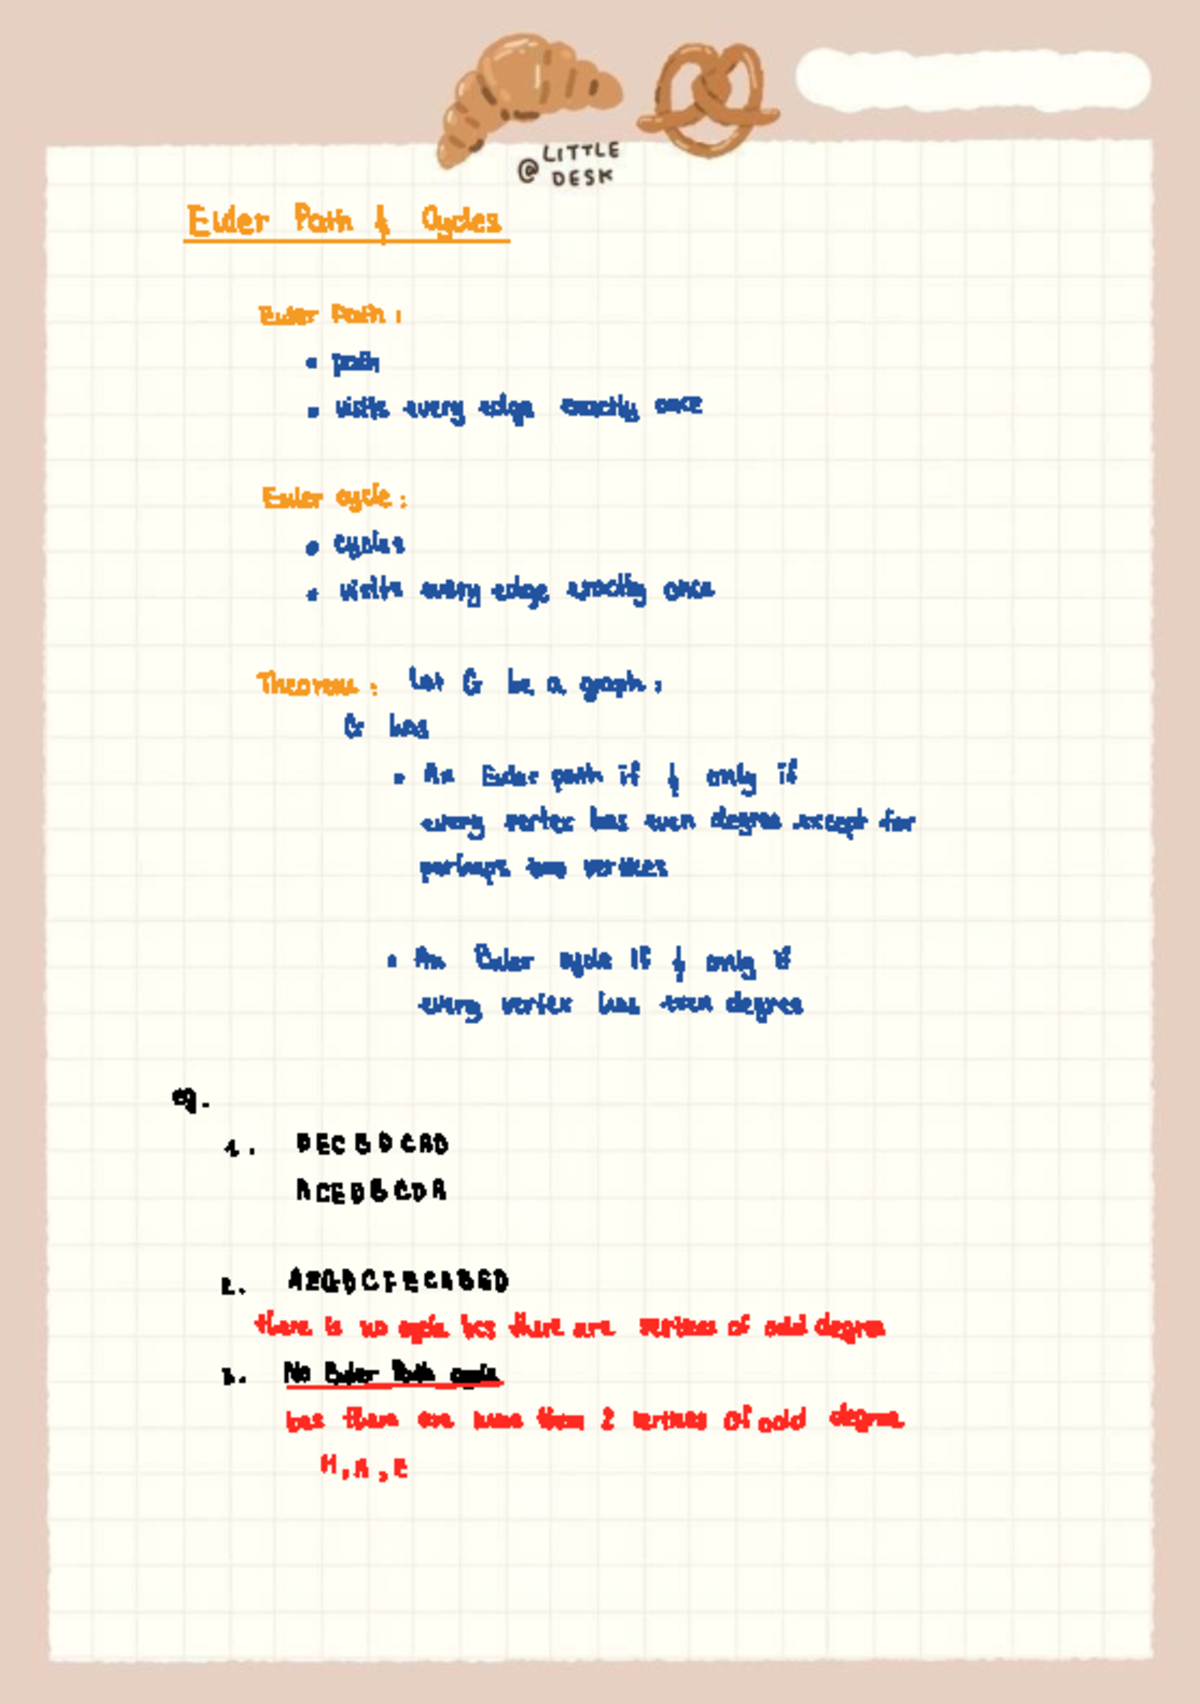 @ LITTLE DESK
Euler Path & Cycles
Euler Path :
• path
• visits every edge exactly once
Euler cycle :
• cycles
• visits every edge exactly once
Theorem : Let G be a graph ;
G has
• An Euler path if & only if
every vertex has even degree except for
perhaps two vertices
• An Euler cycle if & only if
every vertex has even degree
eg.
1. DECBDCAD
ACEDBCDA
2.
there is no cycle bcs there are vertices of odd degree
3. No Euler Path cycle
bcs there are more than 2 vertices of odd degree
H, A, E